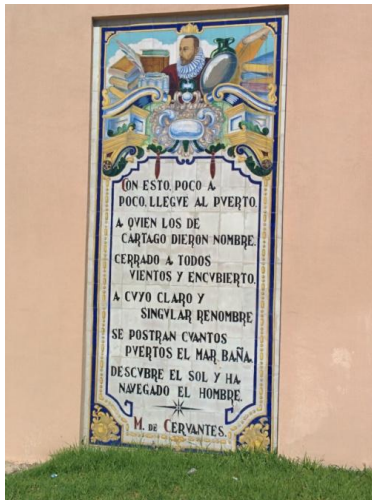 CON ESTO, POCO A
POCO, LLEGVE AL PVERTO.
A QVIEN LOS DE
CARTAGO DIERON NOMBRE.
CERRADO A TODOS
VIENTOS Y ENCVBIERTO.
A CVYO CLARO Y
SINGVLAR RENOMBRE
SE POSTRAN CVANTOS
PVERTOS EL MAR BAÑA,
DESCVBRE EL SOL Y HA
NAVEGADO EL HOMBRE.
M. DE CERVANTES.